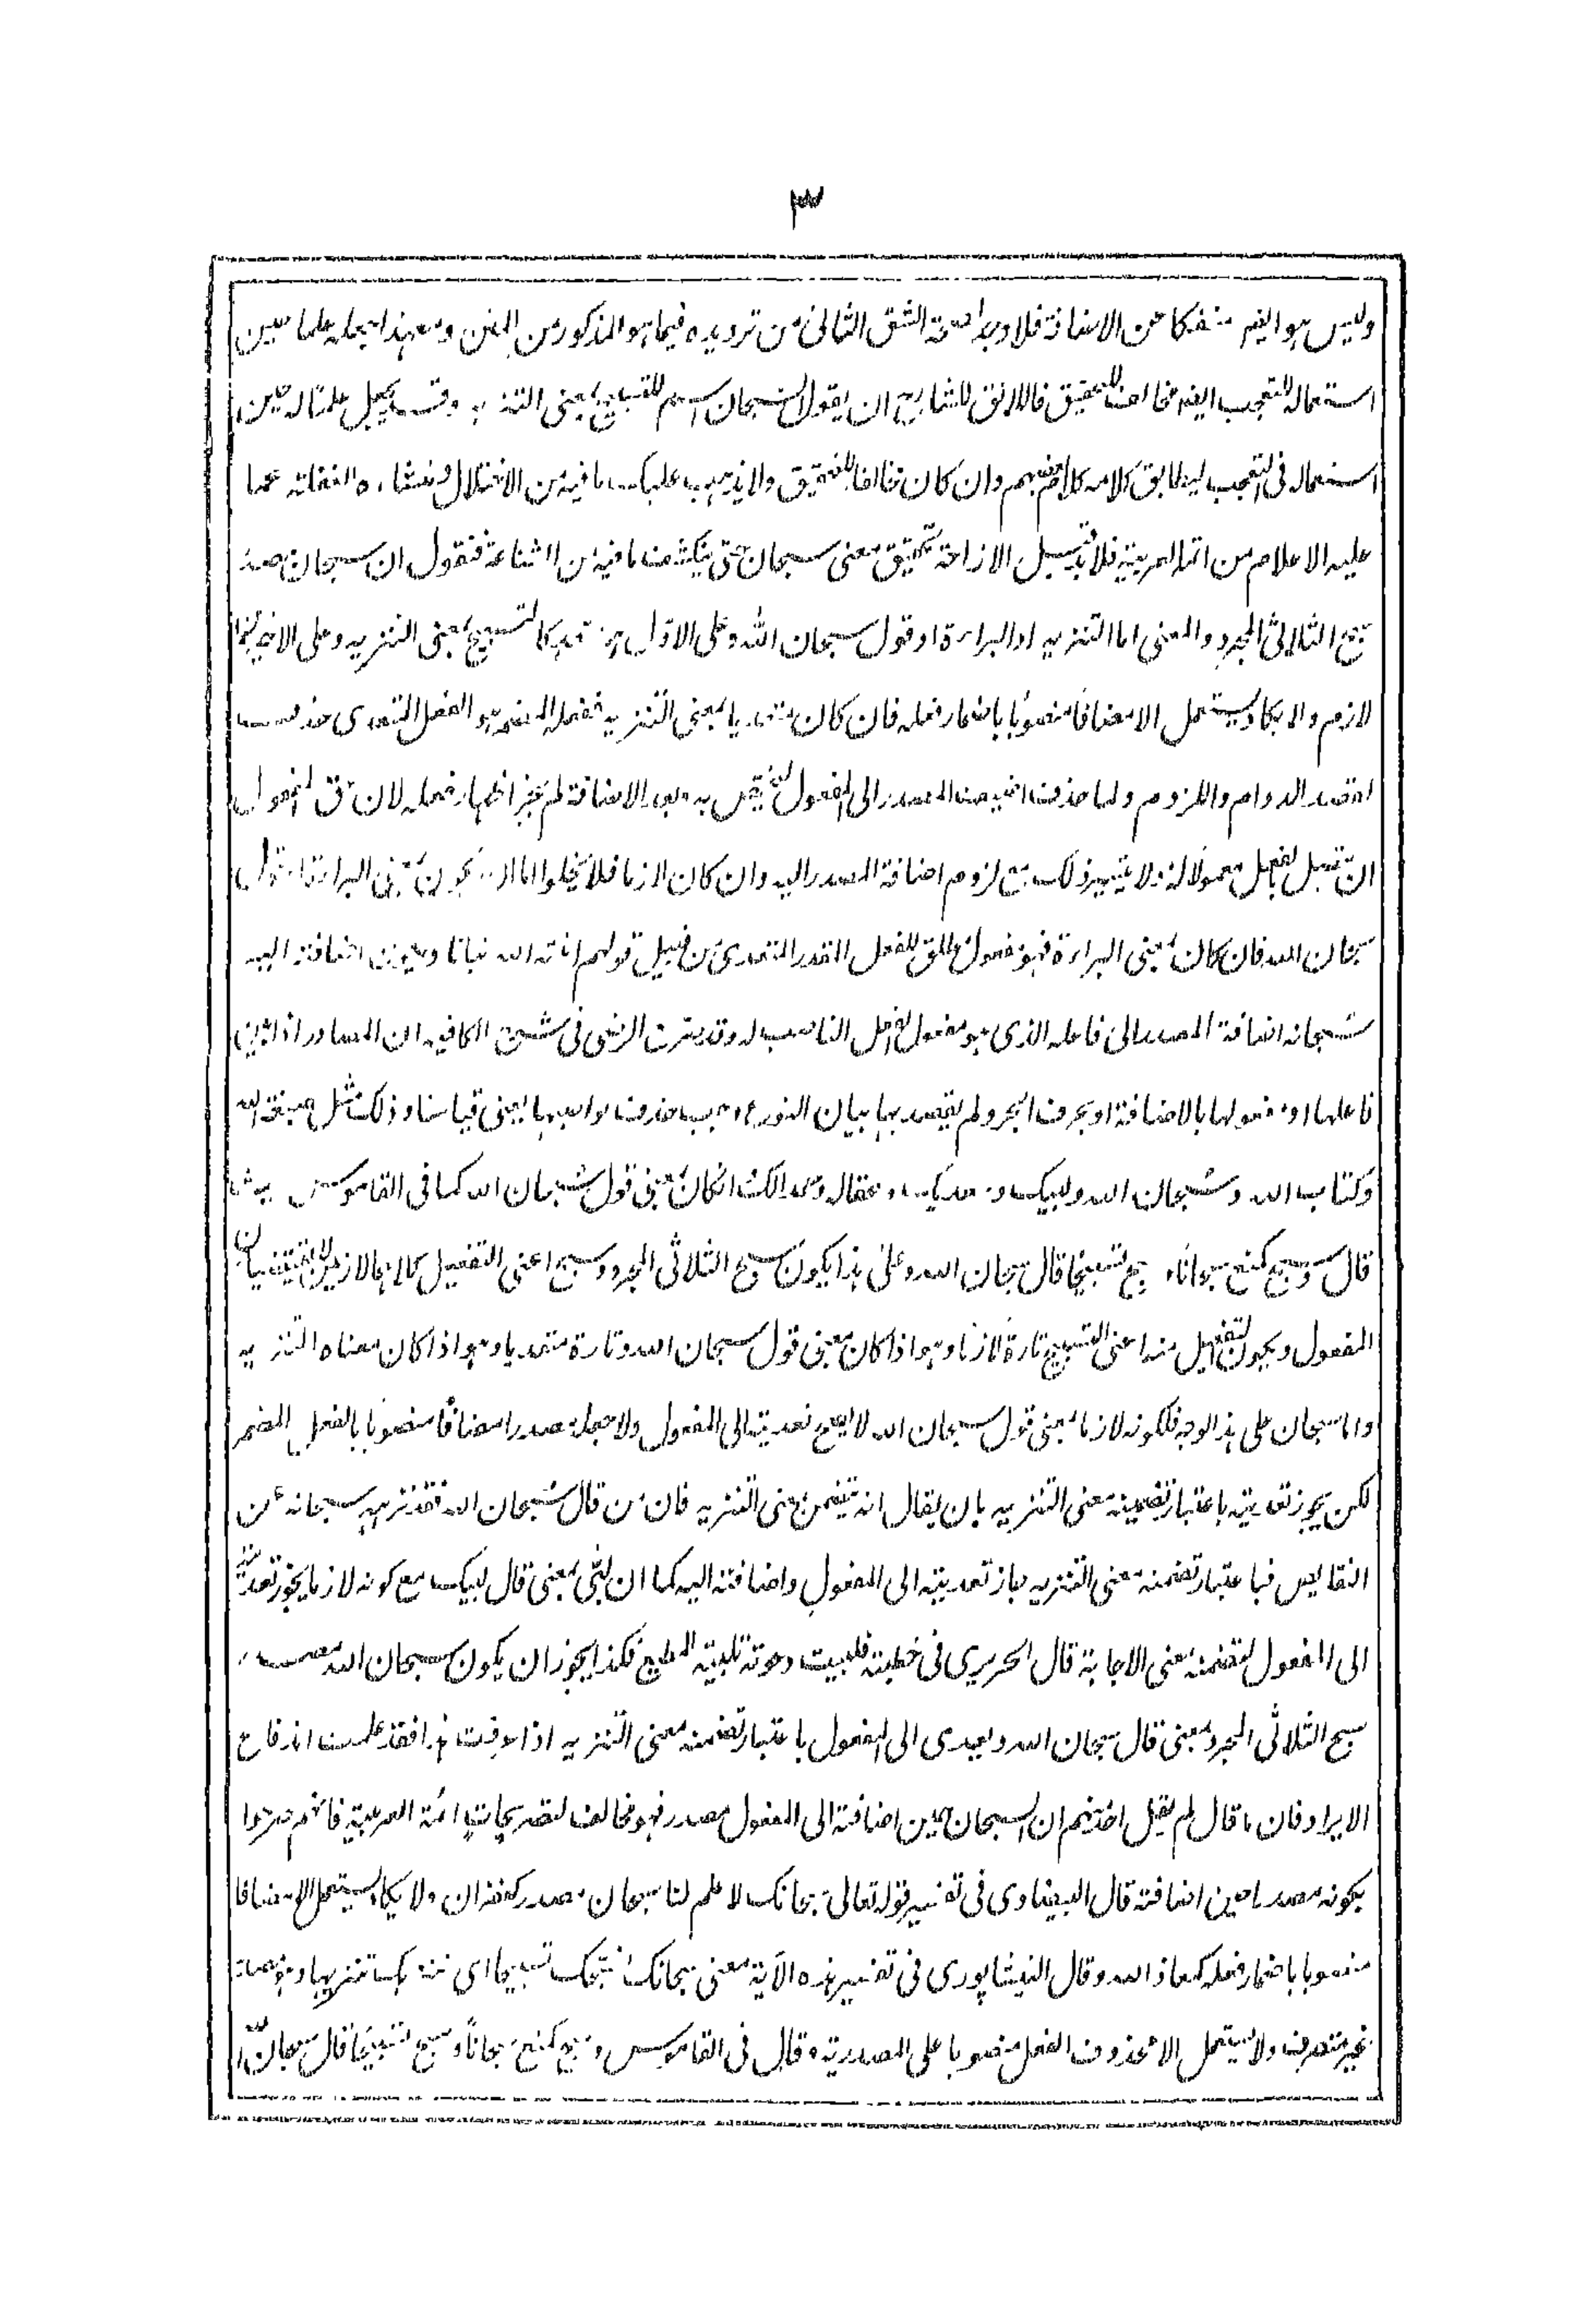 ٣
وليس هو ايضا منفكا عن الاضافة فلا وجه لصحة الشق الثاني من ترديده فيما هو المذكور من المغن ومعهذا جعله علما حين
استعماله للتعجب ايضا مخالف للتحقيق فاللائق للشارح ان يقول ان سبحان اسم للتسبيح بمعنى التنزيه وقد يجعل علما له حين
استعماله في التعجب ليطابق كلامه كلام بعضهم وان كان مخالفا للتحقيق ولا يذهب عليك ما فيه من الاختلال ومنشاءه الغفلة عما
عليه الاعلام من ائمة العربية فلابد لسبيل الازاحة تحقيق معنى سبحان حتى ينكشف ما فيه من الشناعة فنقول ان سبحان مصدر
سبح الثلاثي المجرد والمعنى اما التنزيه او البراءة او قول سبحان الله وعلى الاول متعد كالتسبيح بمعنى التنزيه وعلى الاخيرين
لازم ولا يكاد يستعمل الا مضافا منصوبا باضمار فعله فان كان متعديا بمعنى التنزيه ففعله المضمر هو الفعل المتعدي حذف
لقصد الدوام واللزوم ولما حذف اضيف المصدر الى المفعول وبعد الاضافة لم يجز اظهار فعله لان حق المفعول
ان يتصل بالفعل معمولا له ولا يتيسر ذلك مع لزوم اضافة المصدر اليه وان كان لازما فلا يخلوا اما ان يكون بمعنى البراءة او قول
سبحان الله فان كان بمعنى البراءة فهو مفعول مطلق للفعل المقدر المتعدي من قبيل قولهم انبته الله نباتا ويجوز اضافته اليه
سبحانه اضافة المصدر الى فاعله الذي هو مفعول الفعل الناصب له وقد صرح الرضى في شرح الكافيه ان المصادر اذا بين
فاعلها او مفعولها بالاضافة او بحرف الجر ولم يقصد بها بيان النوع وجب حذف نواصبها يعني قياسا وذلك مثل صبغة الله
وكتاب الله وسبحان الله ولبيك وسعديك وكذلك ان كان بمعنى قول سبحان الله كما في القاموس حيث
قال وسبح كمنع سبحانا وسبح تسبيحا قال سبحان الله وعلى هذا يكون سبح الثلاثي المجرد وسبح اعني التفعيل كلاهما لازمين لا يقتضيان
المفعول ويكون التفعيل منه اعني التسبيح تارة لازما وهو اذا كان بمعنى قول سبحان الله وتارة متعديا وهو اذا كان معناه التنزيه
واما سبحان على هذا الوجه فلكونه لازما بمعنى قول سبحان الله لا يصح تعديته الى المفعول ولا جعله مصدرا مضافا منصوبا بالفعل المضمر
لكن يجوز تعديته باعتبار تضمينه معنى التنزيه بان يقال انه يتضمن معنى التنزيه فان من قال سبحان الله فقد نزهه سبحانه عن
النقايص فباعتبار تضمنه معنى التنزيه جاز تعديته الى المفعول واضافته اليه كما ان لبى بمعنى قال لبيك مع كونه لازما يجوز تعديته
الى المفعول لتضمنه معنى الاجابة قال الحريري في خطبته فلبيت دعوته تلبية المطيع فكذا يجوز ان يكون سبحان الله مصدر
سبح الثلاثي المجرد بمعنى قال سبحان الله ويعدى الى المفعول باعتبار تضمنه معنى التنزيه اذا عرفت هذا فقد علمت اندفاع
الايراد فان ما قال لم يقل احد منهم ان سبحان حين اضافته الى المفعول مصدر فهو مخالف لتصريحات ائمة العربية فانهم صرحوا
بكونه مصدرا حين اضافته قال البيضاوي في تفسير قوله تعالى سبحانك لا علم لنا سبحان مصدر كغفران ولا يكاد يستعمل الا مضافا
منصوبا باضمار فعله كمعاذ الله وقال النيشاپوري في تفسير هذه الآية معنى سبحانك نسبحك تسبيحا اى ننزهك تنزيها وهو مصدر
غير متصرف ولا يستعمل الا محذوف الفعل منصوبا على المصدرية وقال في القاموس وسبح كمنع سبحانا وسبح تسبيحا قال سبحان الله